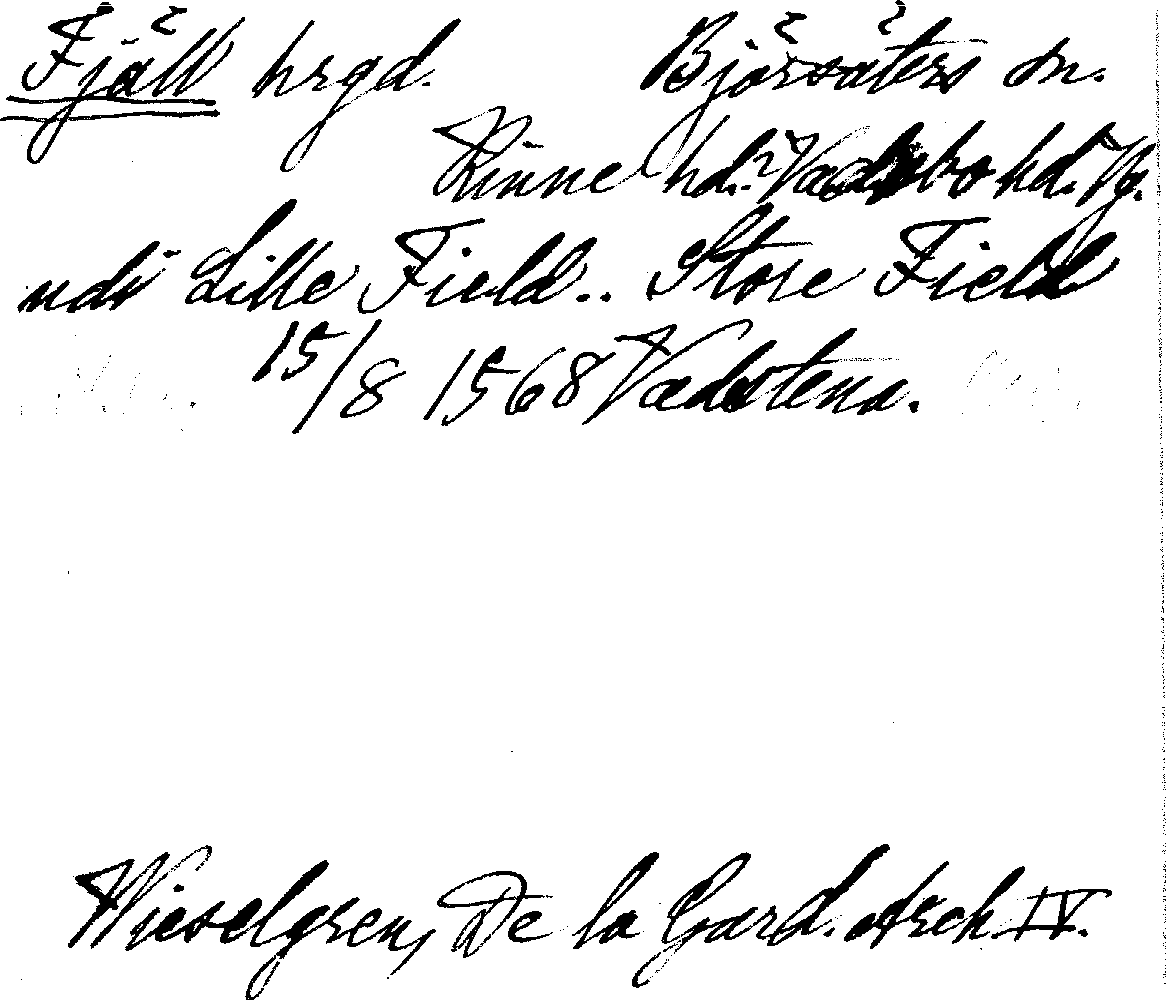 Fjäll hrgd. Björsäters sn.
Kinne hd.? Vadsbo hd. Vg.
udi Lille Field.. Store Field
15/8 1568 Vadstena.
Wieselgren, De la Gard. Arch IV.